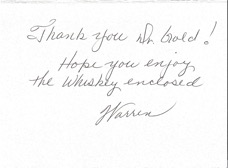 Thank you Dr Gold!
Hope you enjoy
the Whiskey enclosed
Warren